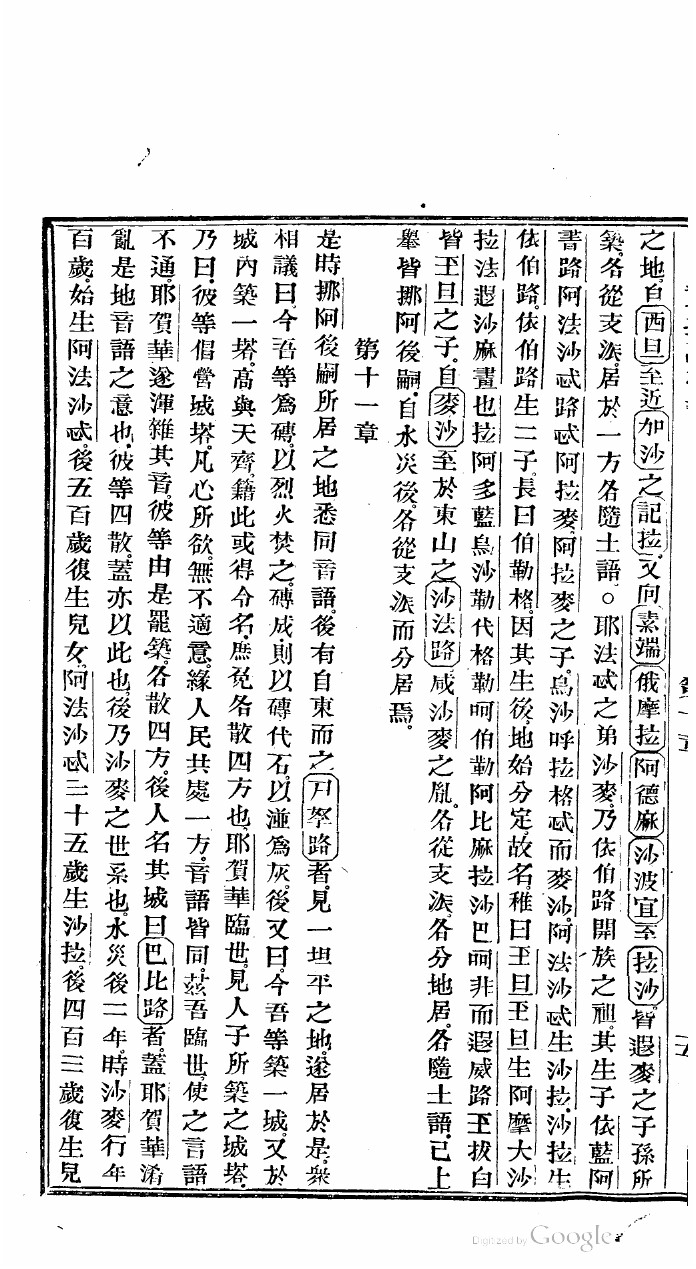 之地。自西旦至近加沙之記拉。又向素端俄摩拉阿德麻沙波宜至拉沙。皆遐麥之子孫所
築。各從支派。居於一方各隨土語。○耶法忒之弟沙麥。乃依伯路開族之祖。其生子依藍阿
書路阿法沙忒路忒阿拉麥。阿拉麥之子。烏沙呼拉格忒而麥沙。阿法沙忒生沙拉。沙拉生
依伯路。依伯路生二子。長曰伯勒格。因其生後。地始分定。故名。稚曰王旦王旦生阿摩大沙
拉法遐沙麻畫也拉阿多藍烏沙勒代格勒呵伯勒阿比麻拉沙巴呵非而遐威路王拔白
皆王旦之子。自麥沙至於東山之沙法路。咸沙麥之胤。各從支派。各分地居。各隨土語。已上
舉皆挪阿後嗣。自水災後。各從支派而分居焉。
第十一章
是時挪阿後嗣所居之地悉同音語。後有自東而之尸拏路者。見一坦平之地。遂居於是。衆
相議曰。今吾等爲磚。以烈火焚之。磚成。則以磚代石。以𣿰爲灰。後又曰。今吾等築一城。又於
城內築一塔。高與天齊。籍此或得令名。庶免各散四方也。耶賀華臨世。見人子所築之城塔。
乃曰。彼等倡營城塔。凡心所欲。無不適意。緣人民共處一方。音語皆同。茲吾臨世。使之言語
不通。耶賀華遂渾雜其音。彼等由是罷築。各散四方。後人名其城曰巴比路者。蓋耶賀華淆
亂是地音語之意也。彼等四散。蓋亦以此也。後乃沙麥之世系也。水災後二年。時沙麥行年
百歲。始生阿法沙忒。後五百歲復生兒女。阿法沙忒三十五歲生沙拉。後四百三歲復生兒
Digitized by Google